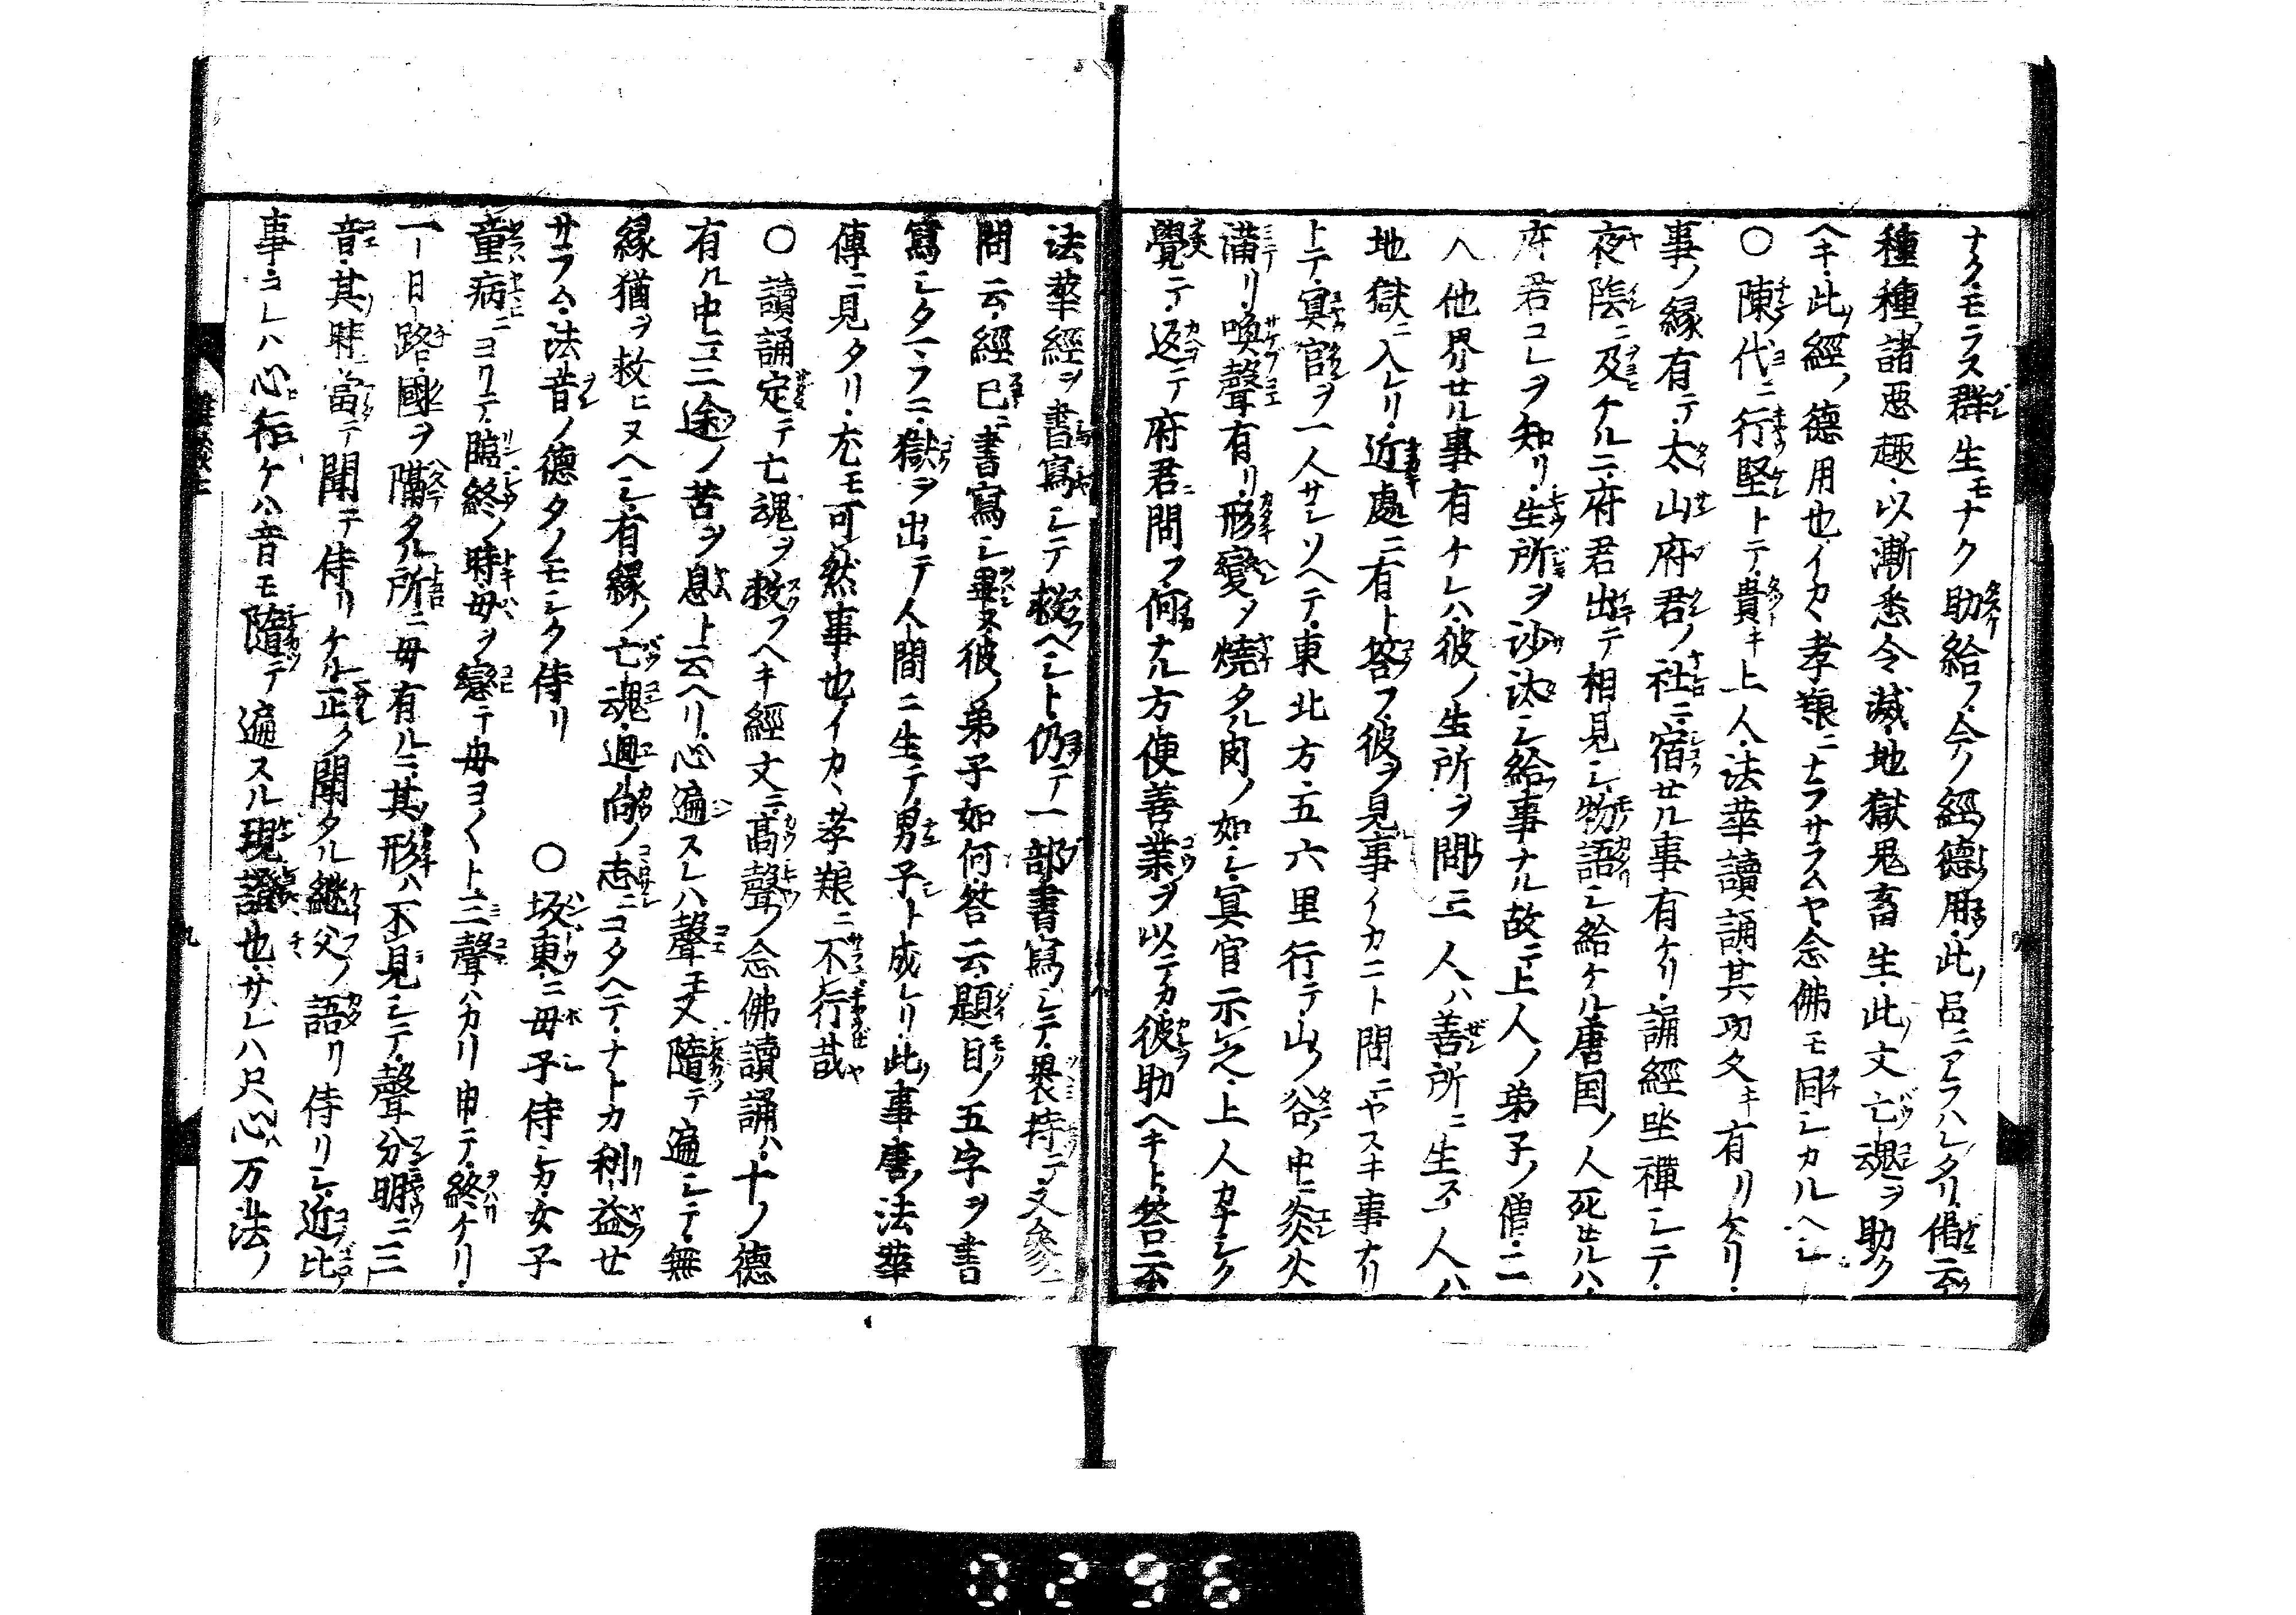 ナク・モラス群生モナク助給フ・今ノ經ノ德用・此ノ品ニアラハレタリ・偈云
種種諸惡趣・以漸悉令滅・地獄鬼畜生・此ノ文亡魂ヲ助ク
ヘキ・此經ノ德用也・イカヽ孝養ニナラサラムヤ・念佛モ同シカルヘシ
〇陳代ニ行堅トテ・貴キ上人・法華讀誦・其功久キ有リケリ・
事ノ縁有テ・太山府君ノ社ニ・宿セル事有ケリ・誦經坐禪シテ・
夜陰ニ及ケルニ・府君出テ相見シ・物語シ給ケル・唐国ノ人死セルハ・
府君コレヲ知リ・生所ヲ沙汰シ給事ナル故ニ・上人ノ弟子ノ僧・二
人他界セル事有ケレハ・彼ノ生所ヲ問ニ・一人ハ善所ニ生ス・一人ハ
地獄ニ入レリ・近處ニ有ト答フ・彼ヲ見事イカニト問ニ・ヤスキ事ナリ
トテ・冥官ヲ一人サシソヘテ・東北方・五六里行テ・山ノ谷ノ中ニ炎火
滿リ・喚聲有リ・形變シ・燒タル肉ノ如シ・冥官示之・上人カナシク
覺ニテ・返テ府君ニ問フ・何ナル方便善業ヲ以テカ・彼ヲ助ヘキト・答云
法華經ヲ書寫シテ救ヘシト・仍テ一部書寫シテ・裹持テ・又參テ
問云・經已ニ書寫シ畢ヌ・彼ノ弟子如何・答云・題目ノ五字ヲ書
寫シタマフニ・獄ヲ出テ人間ニ生テ・男子ト成レリ・此ノ事唐ノ法華
傳ニ見タリ・尤モ可然事也・イカヽ孝養ニ不行哉
〇讀誦定テ亡魂ヲ救フヘキ經文ニ・高聲ノ念佛讀誦ハ・十ノ德
有ル中ニ・三途ノ苦ヲ息ト云ヘリ・心遍スレハ聲モ又隨テ遍シテ・無
縁猶ヲ救ヒヌヘシ・有縁ノ亡魂・廻向ノ志ニコタヘテ・ナトカ利益セ
サラム・法音ノ德タノモシク侍リ 〇坂東ニ母子侍シカ・女子
童病ニヨワテ・臨終ノ時母ヲ戀テ母ヨ〱ト・三聲ハカリ申テ・終ケリ・
一日路・國ヲ隔タル所ニ母有ルニ・其形ハ不見シテ・聲分明ニ三
音・其時ニ當テ聞テ侍リケル・正ク聞タル繼父ノ語リ侍リシ・近比ノ
事・ヨレハ心行ケハ・音モ隨テ遍スル現證也・サレハ只心ハ万法ノ
八
九
0296